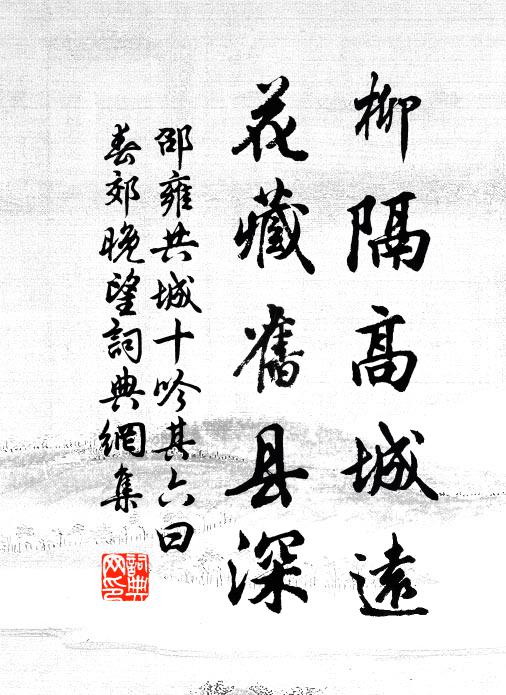 柳隔高城遠
花藏舊县深
邵雍共城十吟其六曰
春郊晚望詞典網集
詞典网印